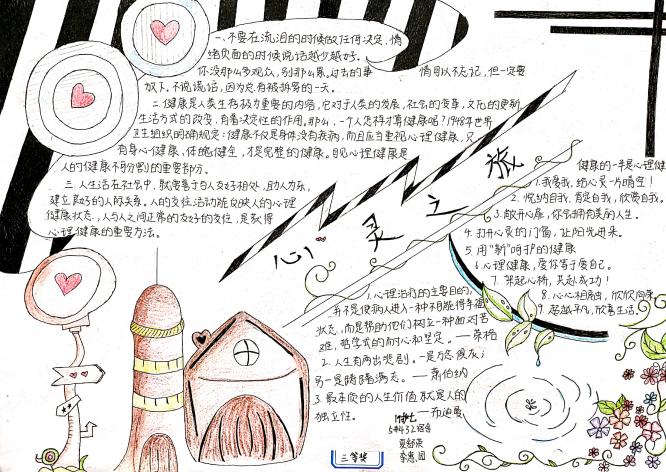 一、不要在流泪的时候做任何决定,情
绪负面的时候说话越少越好。
你没那么多观众,别那么累。过去的事
情可以不忘记,但一定要
放下。不说谎话,因为总有被拆穿的一天。
二.健康是人类生存极为重要的内容,它对于人类的发展,社会的变革,文化的更新,
生活方式的改变,有着决定性的作用。那么,一个人怎样才算健康呢?1948年世界
卫生组织明确规定:健康不仅是身体没有疾病,而且应当重视心理健康,只
有身心健康、体魄健全,才是完整的健康。可见心理健康是
人的健康不可分割的重要部分。
三.人生活在社会中,就要善于与人友好相处,助人为乐,
建立良好的人际关系。人的交往活动能反映人的心理
健康状态,人与人之间正常的友好的交往,是获得
心理健康的重要方法。
心灵之旅
健康的一半是心理健
1.我爱我,给心灵一片晴空!
2.悦纳自我,肯定自我,欣赏自我。
3.敞开心扉,你会拥有美的人生。
4.打开心灵的门窗,让阳光进来。
5.用“新”呵护的健康
6.心理健康,爱你等于爱自己。
7.架起心桥,共赴成功!
8.心心相融,欣欣向荣
9.超越平凡,欣喜生活
1.心理治疗的主要目的,
并不是使病人进入一种不可能得幸福
状态,而是帮助他们树立一种面对苦
难,哲学式的耐心和坚定。——荣格
2.人生有两出悲剧。一是万念俱灰;
另一是踌躇满志。——萧伯纳
3.最本质的人生价值就是人的
独立性。——布迪曼
5#432宿舍
三等奖